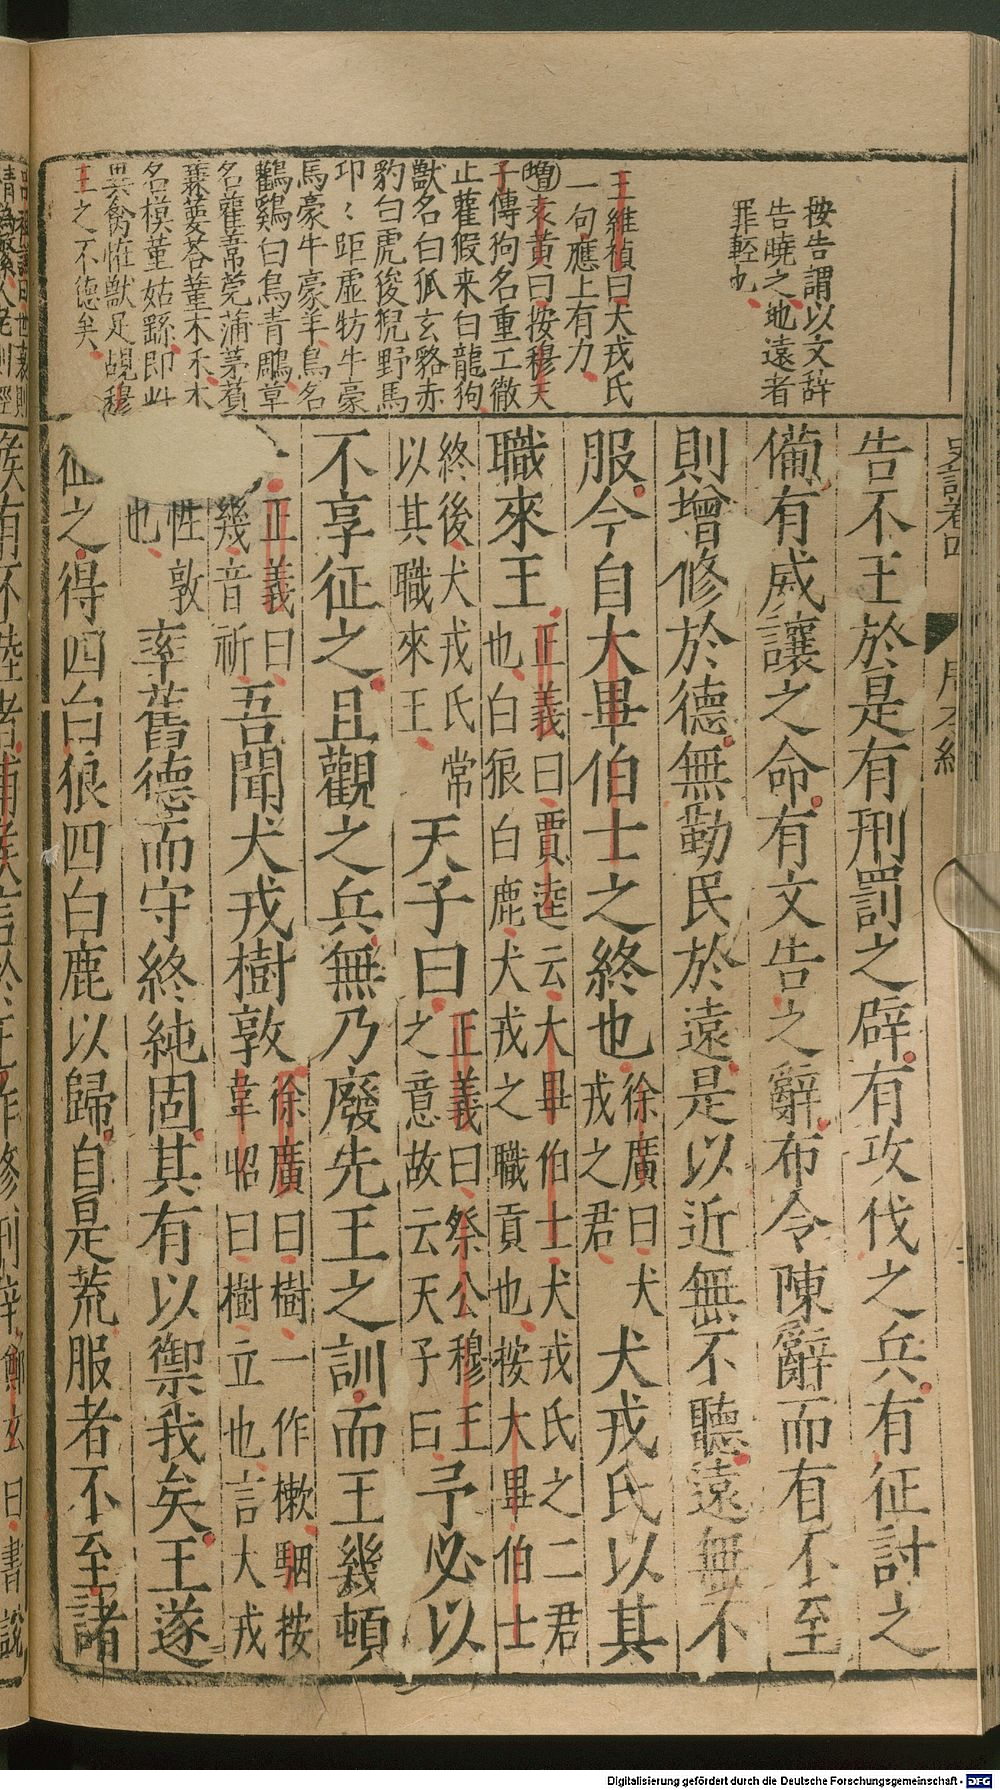 按告謂以文辭
告曉之地遠者
罪輕也
王維禎曰犬戎氏
一句應上有力
增袁黃曰按穆天
子傳狗名重工徹
止雚猳来白龍狗
獸名白狐玄貉赤
豹白虎俊猊野馬
卭〻距虛牥牛豪
馬豪牛豪羊鳥名
鸛鷄白鳥青鵰草
名雚葦莞蒲茅萯
蒹葽荅堇木禾木
名模堇姑繇即此
異禽恠獸足覘穆
王之不德矣
告不王於是有刑罰之辟有攻伐之兵有征討之
備有威讓之命有文告之辭布令陳辭而有不至
則增修於德無勤民於遠是以近無不聽遠無不
服今自大畢伯士之終也
徐廣曰犬
戎之君
犬戎氏以其
職來王
正義曰賈逵云大畢伯士犬戎氏之二君
也白狼白鹿犬戎之職貢也按大畢伯士
終後犬戎氏常
以其職來王
天子曰
正義曰祭公穆王
之意故云天子曰
予必以
不享征之且觀之兵無乃廢先王之訓而王幾頓
正義曰
幾音祈
吾聞犬戎樹敦
徐廣曰樹一作樕駰按
韋昭曰樹立也言犬戎
性敦
也
率舊德而守終純固其有以禦我矣王遂
征之得四白狼四白鹿以歸自是荒服者不至諸
史記卷四
周本紀
Digitalisierung gefördert durch die Deutsche Forschungsgemeinschaft - DFG